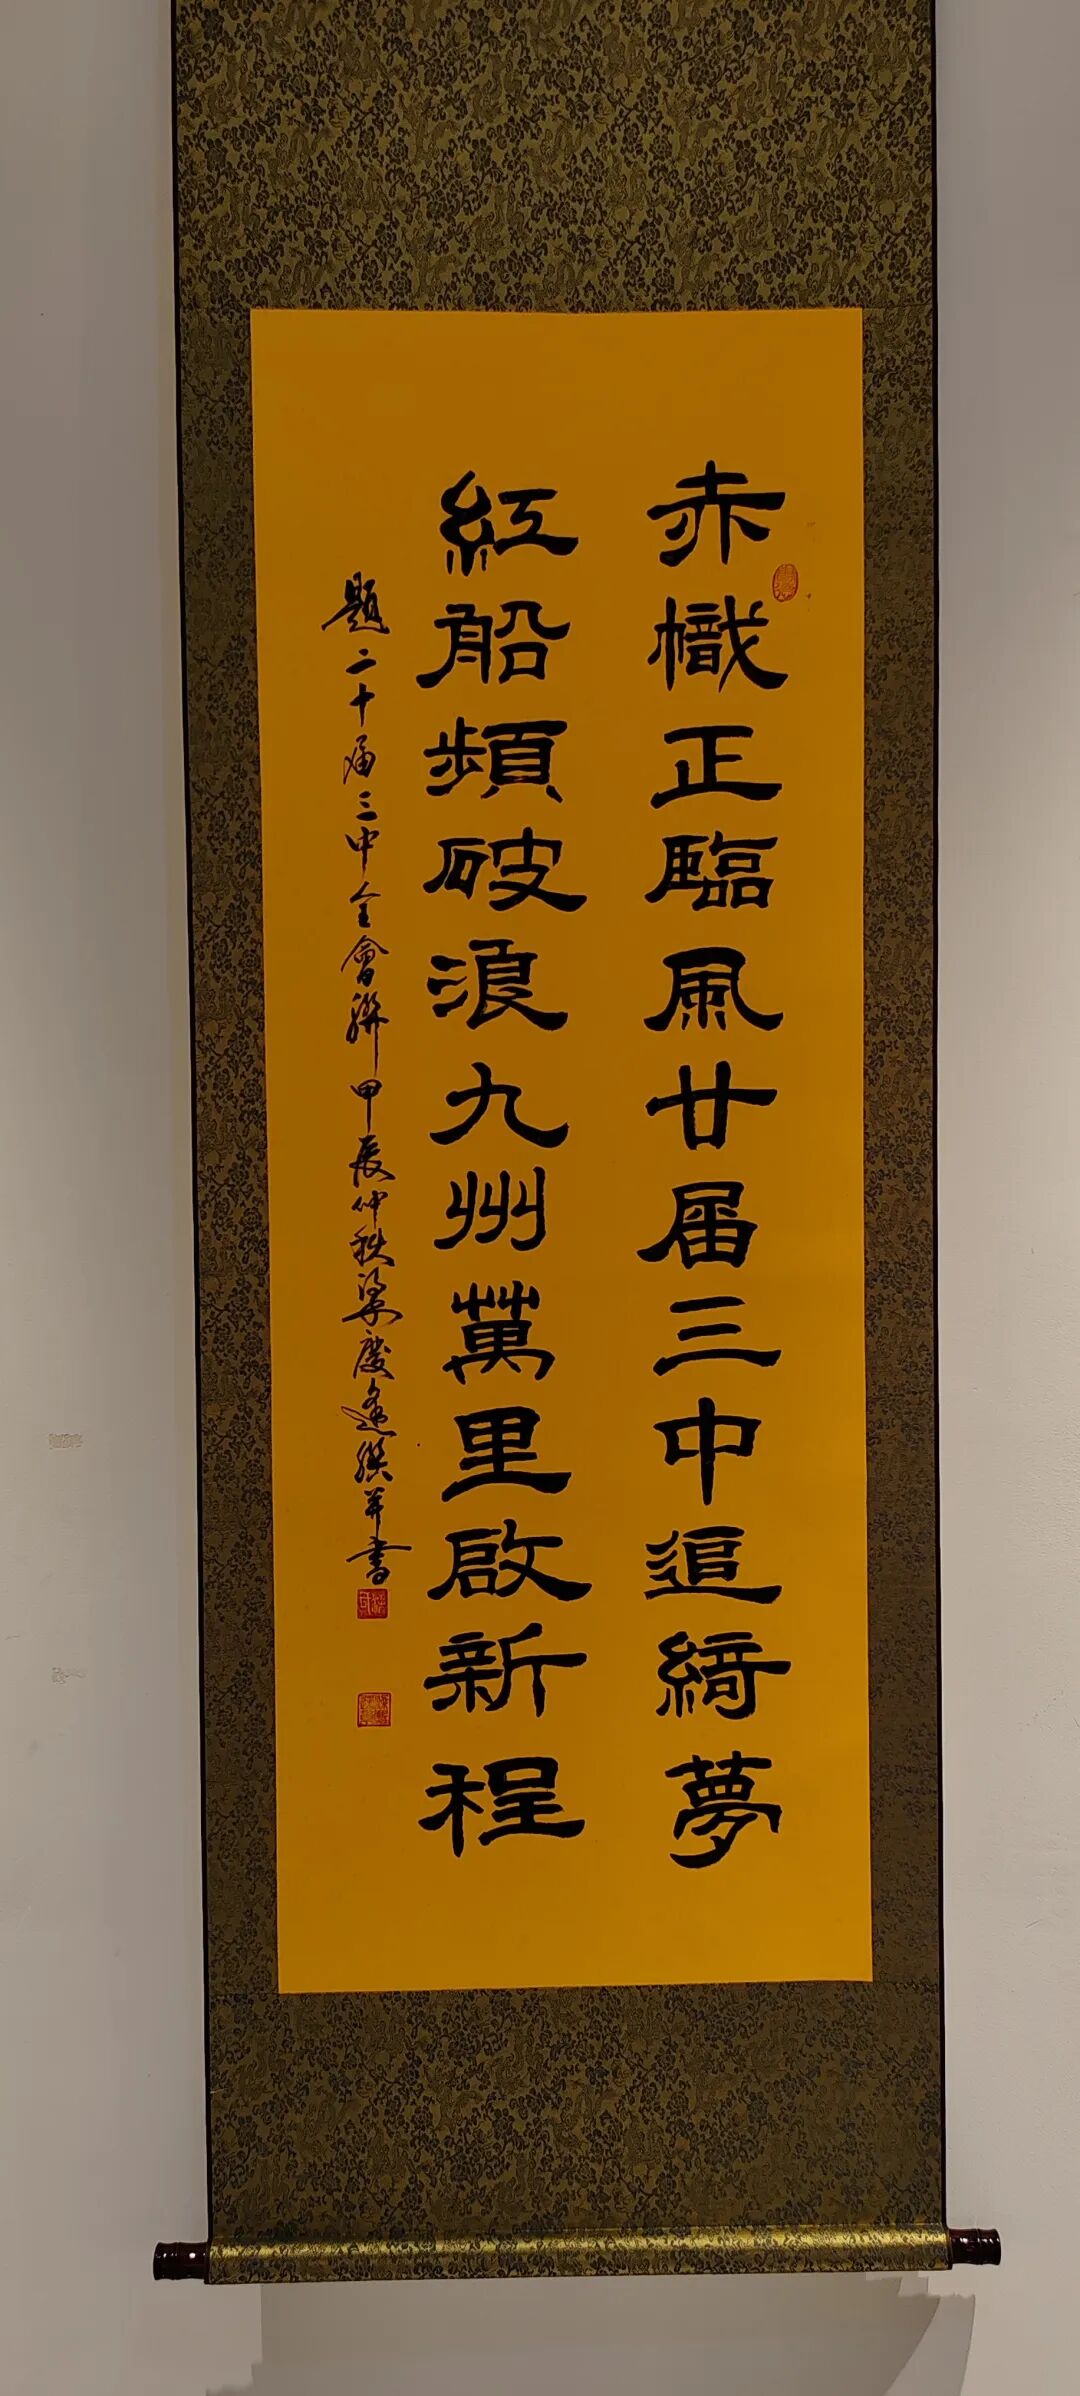 赤幟正臨風廿届三中追綺夢
紅船頻破浪九州萬里啟新程
題二十届三中全會聯甲辰仲秋梁慶逢撰並書